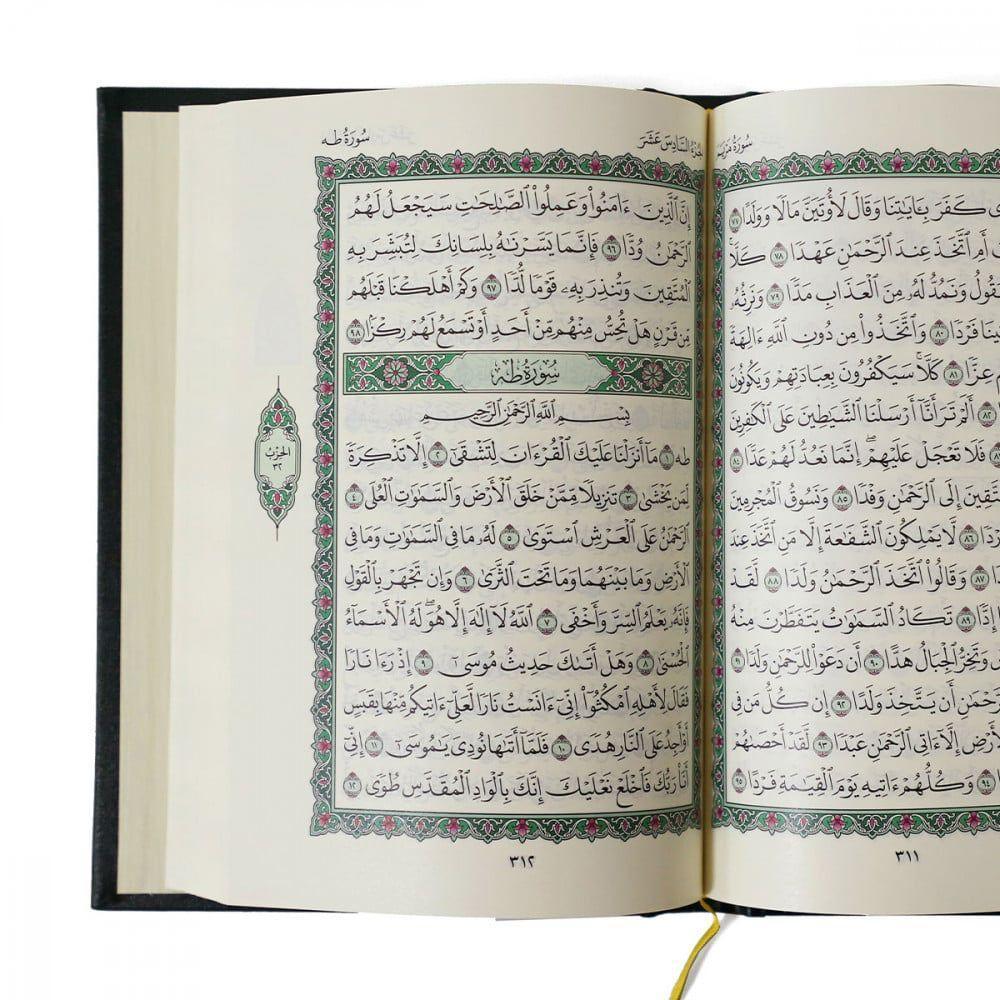 سُورَةُ مَرْيَم
كَفَرَ بِـَٔايَـٰتِنَا وَقَالَ لَأُوتَيَنَّ مَالًا وَوَلَدًا ٧٧
أَمِ ٱتَّخَذَ عِندَ ٱلرَّحْمَـٰنِ عَهْدًا ٧٨ كَلَّا
وَنَمُدُّ لَهُۥ مِنَ ٱلْعَذَابِ مَدًّا ٧٩ وَنَرِثُهُۥ
فَرْدًا ٨٠ وَٱتَّخَذُوا۟ مِن دُونِ ٱللَّهِ ءَالِهَةً
عِزًّا ٨١ كَلَّا سَيَكْفُرُونَ بِعِبَادَتِهِمْ وَيَكُونُونَ
٨٢ أَلَمْ تَرَ أَنَّآ أَرْسَلْنَا ٱلشَّيَـٰطِينَ عَلَى ٱلْكَـٰفِرِينَ
فَلَا تَعْجَلْ عَلَيْهِمْ ۖ إِنَّمَا نَعُدُّ لَهُمْ عَدًّا ٨٤
إِلَى ٱلرَّحْمَـٰنِ وَفْدًا ٨٥ وَنَسُوقُ ٱلْمُجْرِمِينَ
٨٦ لَّا يَمْلِكُونَ ٱلشَّفَـٰعَةَ إِلَّا مَنِ ٱتَّخَذَ عِندَ
٨٧ وَقَالُوا۟ ٱتَّخَذَ ٱلرَّحْمَـٰنُ وَلَدًا ٨٨ لَّقَدْ
٨٩ تَكَادُ ٱلسَّمَـٰوَٰتُ يَتَفَطَّرْنَ مِنْهُ
وَتَخِرُّ ٱلْجِبَالُ هَدًّا ٩٠ أَن دَعَوْا۟ لِلرَّحْمَـٰنِ وَلَدًا ٩١
أَن يَتَّخِذَ وَلَدًا ٩٢ إِن كُلُّ مَن فِى
إِلَّآ ءَاتِى ٱلرَّحْمَـٰنِ عَبْدًا ٩٣ لَّقَدْ أَحْصَىٰهُمْ
٩٤ وَكُلُّهُمْ ءَاتِيهِ يَوْمَ ٱلْقِيَـٰمَةِ فَرْدًا ٩٥
٣١١
ٱلجُزْءُ ٱلسَّادِسَ عَشَرَ
سُورَةُ طه
إِنَّ ٱلَّذِينَ ءَامَنُوا۟ وَعَمِلُوا۟ ٱلصَّـٰلِحَـٰتِ سَيَجْعَلُ لَهُمُ
ٱلرَّحْمَـٰنُ وُدًّا ٩٦ فَإِنَّمَا يَسَّرْنَـٰهُ بِلِسَانِكَ لِتُبَشِّرَ بِهِ
ٱلْمُتَّقِينَ وَتُنذِرَ بِهِۦ قَوْمًا لُّدًّا ٩٧ وَكَمْ أَهْلَكْنَا قَبْلَهُم
مِّن قَرْنٍ هَلْ تُحِسُّ مِنْهُم مِّنْ أَحَدٍ أَوْ تَسْمَعُ لَهُمْ رِكْزًۢا ٩٨
سُورَةُ طه
بِسْمِ ٱللَّهِ ٱلرَّحْمَـٰنِ ٱلرَّحِيمِ
طه ١ مَآ أَنزَلْنَا عَلَيْكَ ٱلْقُرْءَانَ لِتَشْقَىٰٓ ٢ إِلَّا تَذْكِرَةً
لِّمَن يَخْشَىٰ ٣ تَنزِيلًا مِّمَّنْ خَلَقَ ٱلْأَرْضَ وَٱلسَّمَـٰوَٰتِ ٱلْعُلَى ٤
ٱلرَّحْمَـٰنُ عَلَى ٱلْعَرْشِ ٱسْتَوَىٰ ٥ لَهُۥ مَا فِى ٱلسَّمَـٰوَٰتِ وَمَا فِى
ٱلْأَرْضِ وَمَا بَيْنَهُمَا وَمَا تَحْتَ ٱلثَّرَىٰ ٦ وَإِن تَجْهَرْ بِٱلْقَوْلِ
فَإِنَّهُۥ يَعْلَمُ ٱلسِّرَّ وَأَخْفَى ٧ ٱللَّهُ لَآ إِلَـٰهَ إِلَّا هُوَ ۖ لَهُ ٱلْأَسْمَآءُ
ٱلْحُسْنَىٰ ٨ وَهَلْ أَتَىٰكَ حَدِيثُ مُوسَىٰٓ ٩ إِذْ رَءَا نَارًا
فَقَالَ لِأَهْلِهِ ٱمْكُثُوٓا۟ إِنِّىٓ ءَانَسْتُ نَارًا لَّعَلِّىٓ ءَاتِيكُم مِّنْهَا بِقَبَسٍ
أَوْ أَجِدُ عَلَى ٱلنَّارِ هُدًى ١٠ فَلَمَّآ أَتَىٰهَا نُودِىَ يَـٰمُوسَىٰٓ ١١ إِنِّىٓ
أَنَا۠ رَبُّكَ فَٱخْلَعْ نَعْلَيْكَ ۖ إِنَّكَ بِٱلْوَادِ ٱلْمُقَدَّسِ طُوًى ١٢
ٱلحِزْبُ
٣٢
٣١٢